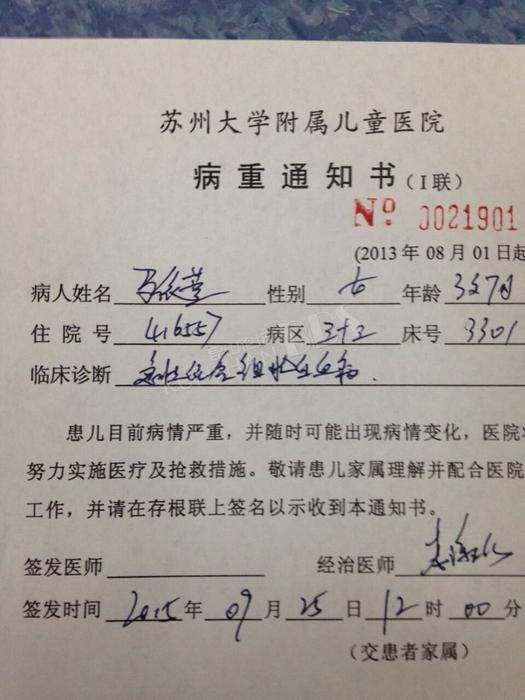 苏州大学附属儿童医院
病重通知书(I联)
Nº 0021901
(2013年08月01日起
病人姓名 性别 女 年龄 3岁7月
住院号 416557 病区 3+2 床号 3301
临床诊断 急性混合细胞白血病
患儿目前病情严重，并随时可能出现病情变化，医院
努力实施医疗及抢救措施。敬请患儿家属理解并配合医院
工作，并请在存根联上签名以示收到本通知书。
签发医师 经治医师
签发时间 2015年09月25日12时00分
(交患者家属)